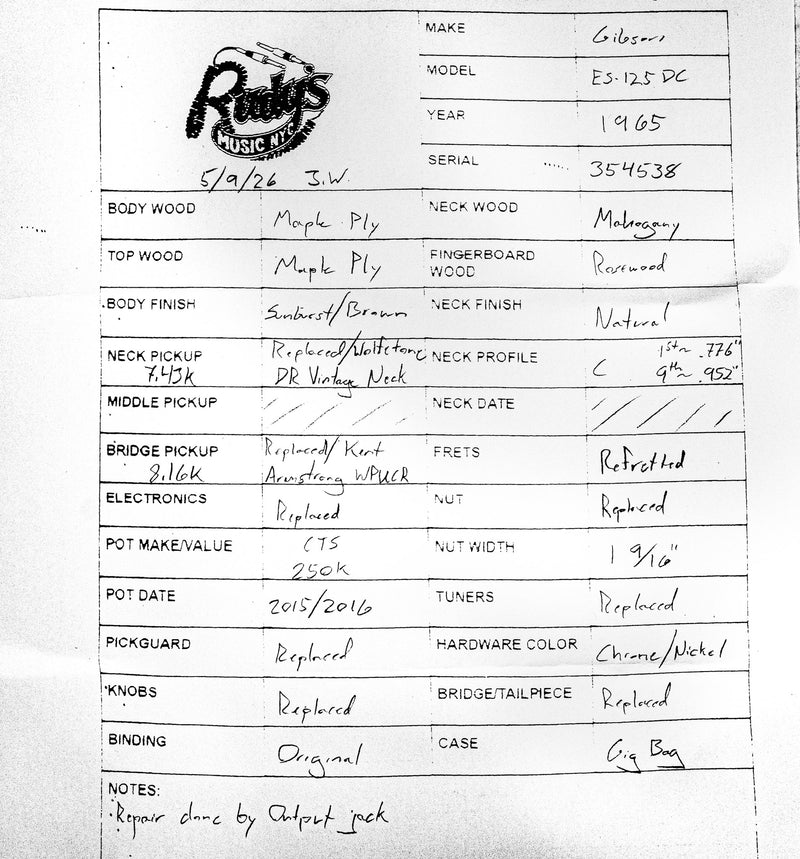 Rudy's
MUSIC NYC
5/9/26 J.W.
MAKE Gibson
MODEL ES-125 DC
YEAR 1965
SERIAL 354538
BODY WOOD Maple Ply NECK WOOD Mahogany
TOP WOOD Maple Ply FINGERBOARD WOOD Rosewood
BODY FINISH Sunburst/Brown NECK FINISH Natural
NECK PICKUP 7.43K Replaced/Wolfetone DR Vintage Neck NECK PROFILE C 1st~ .776" 9th~ .952"
MIDDLE PICKUP NECK DATE
BRIDGE PICKUP 8.16K Replaced/Kent Armstrong WPUCR FRETS Refretted
ELECTRONICS Replaced NUT Replaced
POT MAKE/VALUE CTS 250K NUT WIDTH 1 9/16"
POT DATE 2015/2016 TUNERS Replaced
PICKGUARD Replaced HARDWARE COLOR Chrome/Nickel
KNOBS Replaced BRIDGE/TAILPIECE Replaced
BINDING Original CASE Gig Bag
NOTES:
·Repair done by Output jack